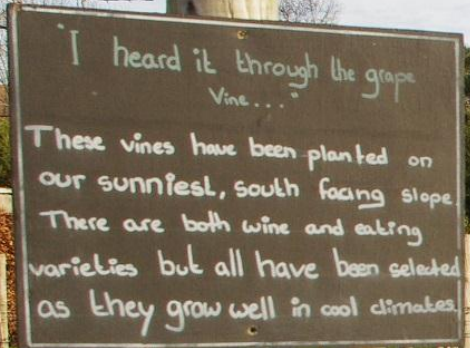 "I heard it through the grape
Vine..."
These vines have been planted on
our sunniest, south facing slope.
There are both wine and eating
varieties but all have been selected
as they grow well in cool climates.